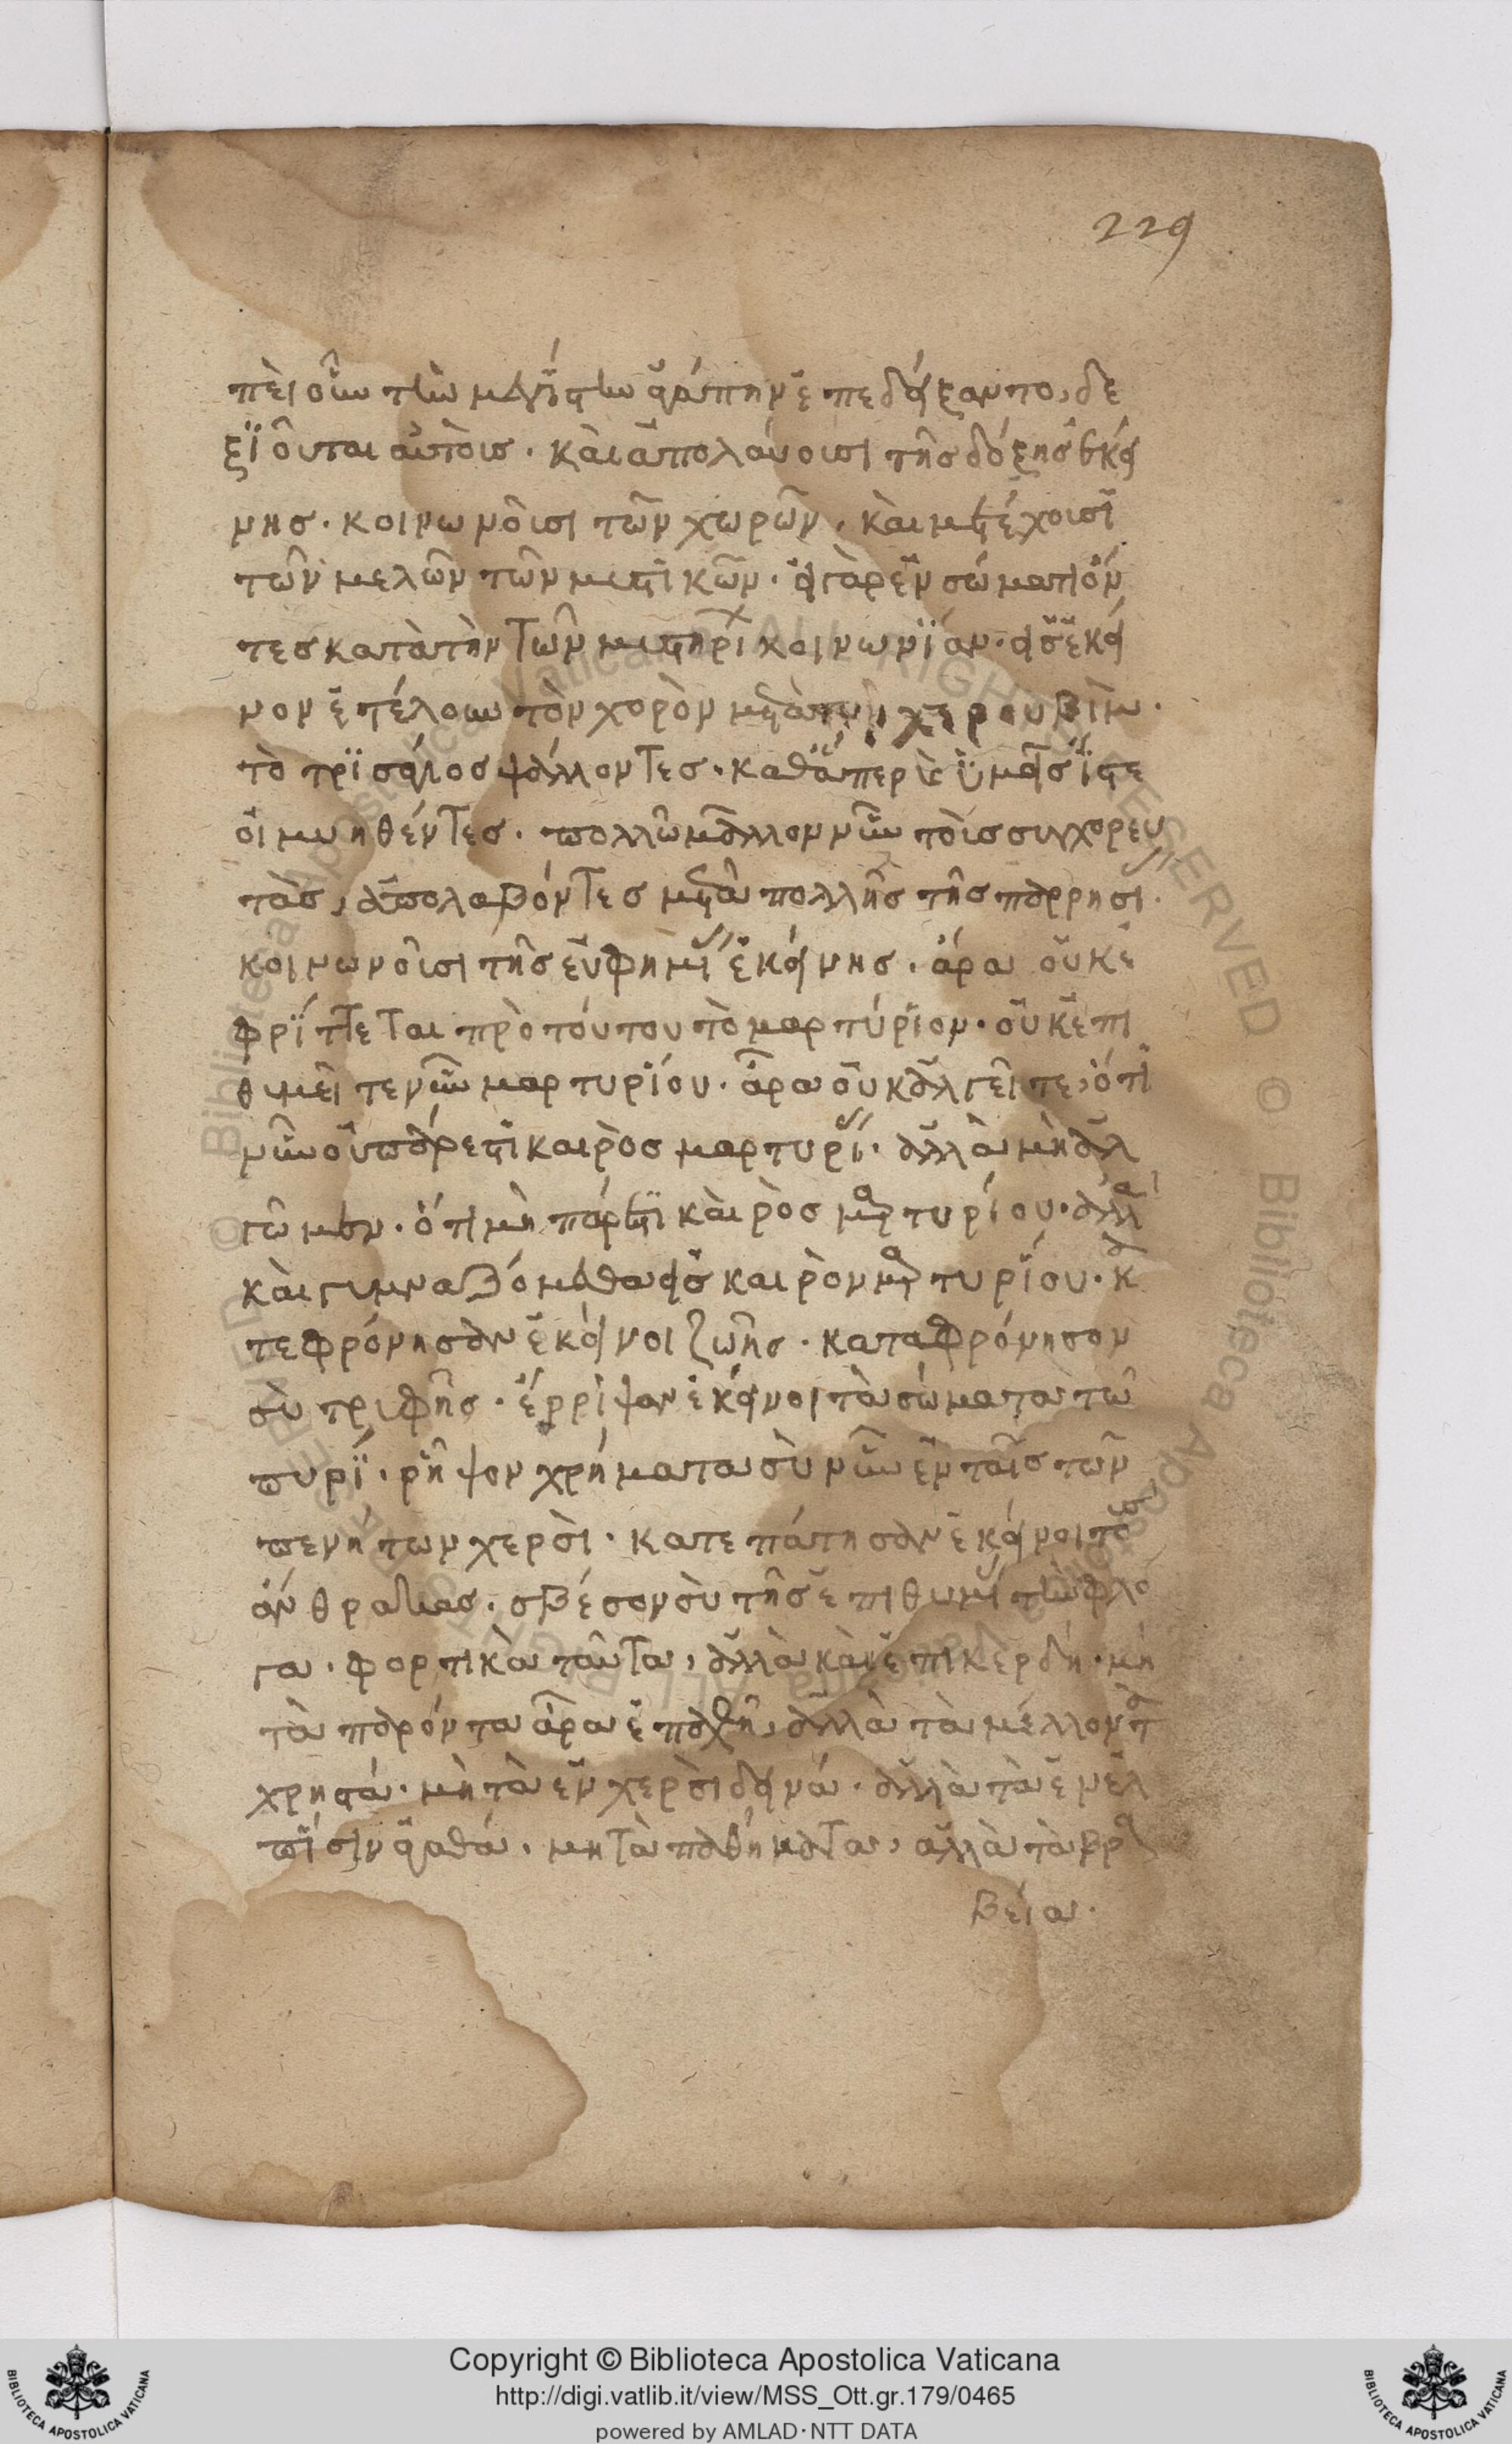 229
πεὶ οὖν τὴν μεγίστην ἀγάπην ἐπεδείξαντο, δε
ξϊοῦται αὐτοὺς. καὶ ἀπολαύουσι τῆς δόξης ἐκεί
νης. κοινωνοῦσι τῶν χωρῶν, καὶ μετέχουσϊ
τῶν μελῶν τῶν μυστικῶν. εἰ γὰρ ἐν σώματι ὄν
τες κατὰ τὴν τῶν μυστηρί κοινωνίαν. εἰς ἐκεῖ
νον ἐτέλουν τὸν χορὸν μετὰ τῶν χερουβὶμ.
τὸ τρισάγιος ψάλλοντες. καθάπερ ὑμεῖς ἴστε
οἱ μυηθέντες. πολλῷ μᾶλλον νῦν τοὺς συγχορευ
τὰς, ἀπολαβόντες μετὰ πολλῆς τῆς παρρησι
κοινωνοῦσι τῆς εὐφημί ἐκείνης. ἆρα οὐκ ἐ
φρίττεται πρὸ τούτου τὸ μαρτύριον. οὐκ ἐπι
θυμεῖτε νῦν μαρτυρίου. ἆρα οὐκ ἀλγεῖτε, ὅτι
νῦν οὐ πάρεστι καιρὸς μαρτυρί. ἀλλὰ μὴ ἀλ
γῶμεν. ὅτι μὴ πάρεστι καιρὸς μαρτυρίου. ἀλλὰ
καὶ γυμναζόμεθα εἰς καιρὸν μαρτυρίου. κα
τεφρόνησαν ἐκεῖνοι ζωῆς. καταφρόνησον
σὺ τρυφῆς. ἔρριψαν ἐκεῖνοι τὰ σώματα τῷ
πυρί. ρῆψον χρήματα σὺ νῦν ἐν ταῖς τῶν
πενήτων χερσὶ. κατεπάτησαν ἐκεῖνοι τοὺς
ἄνθρακας. σβέσον σὺ τῆς ἐπιθυμί τὴν φλό
γα. φορτικὰ ταῦτα, ἀλλὰ καὶ ἐπικερδή. μὴ
τὰ παρόντα ὅρα ἐπαχθῆ, ἀλλὰ τὰ μέλλοντα
χρηστά. μὴ τὰ ἐν χερσὶ δεινά. ἀλλὰ τὰ ἐν ἐλ
πίσιν ἀγαθά. μὴ τὰ παθήματα, ἀλλὰ τὰ βρα
βεία.
Copyright © Biblioteca Apostolica Vaticana
http://digi.vatlib.it/view/MSS_Ott.gr.179/0465
powered by AMLAD·NTT DATA